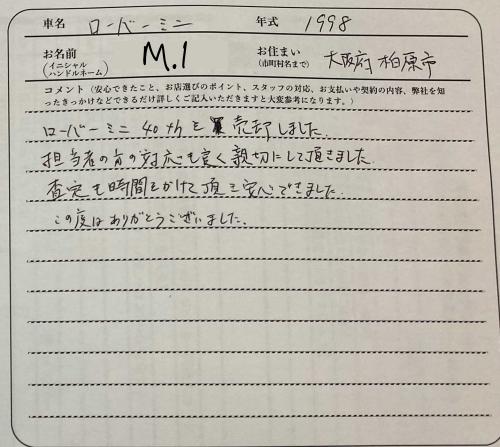 車名 ローバーミニ 年式 1998
お名前 (イニシャル ハンドルネーム) M.I お住まい (市町村名まで) 大阪府 柏原市
コメント (安心できたこと、お店選びのポイント、スタッフの対応、お支払いや契約の内容、弊社を知
ったきっかけなどできるだけ詳しくご記入いただきますと大変参考になります。)
ローバーミニ 40thを 売却しました.
担当者の方の対応も良く親切にして頂きました.
査定も時間をかけて頂き安心できました.
この度はありがとうございました.